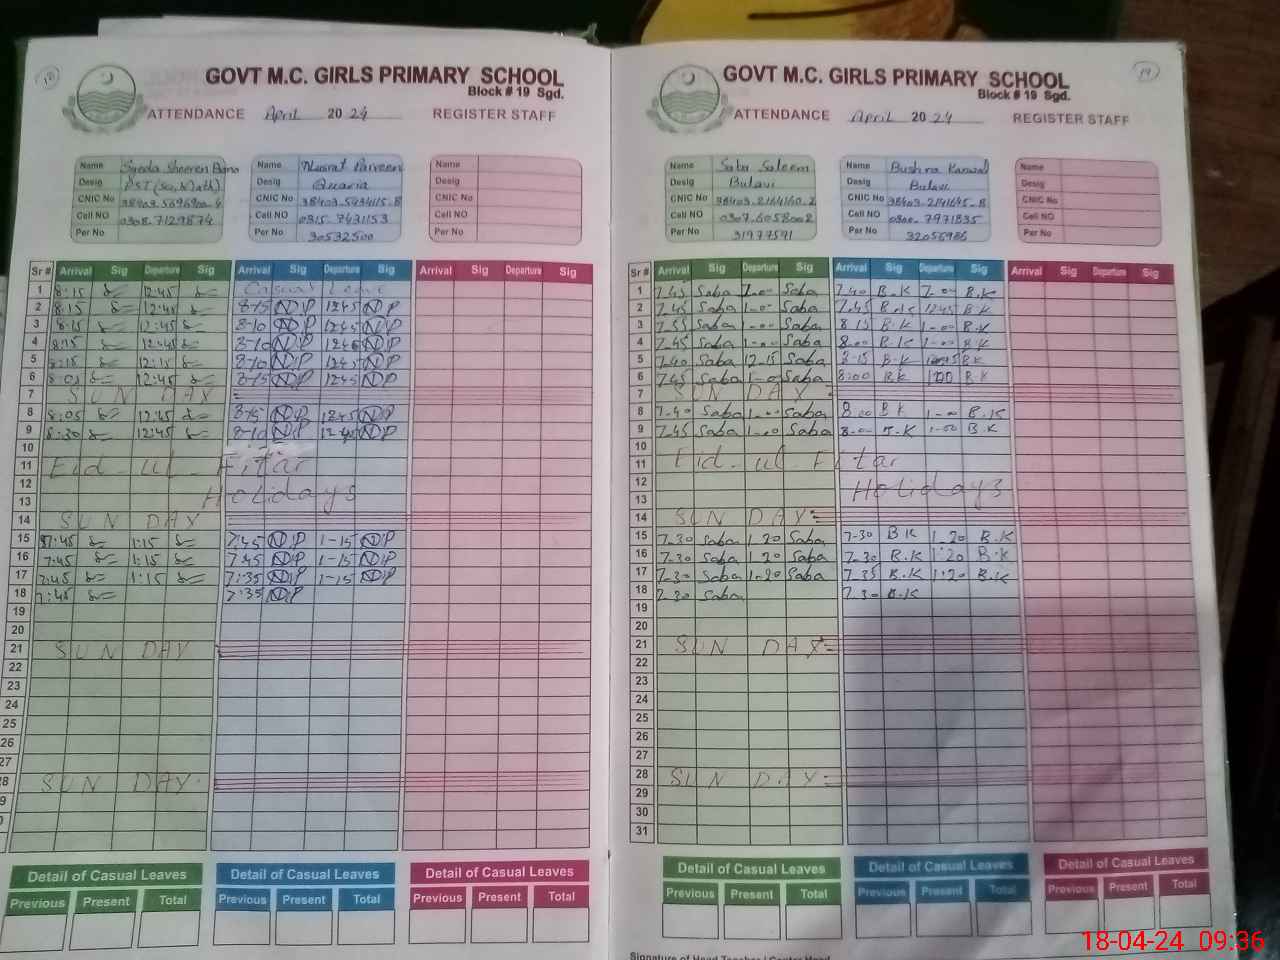 19
GOVT M.C. GIRLS PRIMARY SCHOOL
Block # 19 Sgd.
ATTENDANCE April 2024 REGISTER STAFF
Name Syeda Sheeren Bano
Desig PST (Sci, Math)
CNIC No
Cell NO 0308-7129874
Per No
Name Nusrat Parveen
Desig Quaria
CNIC No 38403-5434115-8
Cell NO 0315-7431153
Per No 30532500
Name
Desig
CNIC No
Cell NO
Per No
Sr # Arrival Sig Departure Sig Arrival Sig Departure Sig Arrival Sig Departure Sig
1 8:15 12:45 Casual Leave
2 8:15 12:45 8-15 NP 1245 NP
3 8:15 12:45 8-10 NP 1245 NP
4 8:15 12:45 8-10 NP 1245 NP
5 8:15 12:15 8-10 NP 1245 NP
6 8:05 12:45 8-15 NP 1245 NP
7 SUN DAY
8 8:05 12:45 8-15 NP 1245 NP
9 8:30 12:45 8-10 NP NP
10
11 Eid-ul-Fitar
12
13 Holidays
14 SUN DAY
15 7:45 1:15 7:45 NP 1-15 NP
16 7:45 1:15 7:45 NP 1-15 NP
17 7:45 1:15 7:35 NP 1-15 NP
18 7:45 7:35 NP
19
20
21 SUN DAY
22
23
24
25
26
27
28 SUN DAY
Detail of Casual Leaves Detail of Casual Leaves Detail of Casual Leaves
Previous Present Total Previous Present Total Previous Present Total
GOVT M.C. GIRLS PRIMARY SCHOOL
Block # 19 Sgd.
ATTENDANCE April 2024 REGISTER STAFF
Name Saba Saleem
Desig Bulavi
CNIC No 38403-2164160-2
Cell NO 0307-6058002
Per No 31977591
Name Bushra Kanwal
Desig Bulavi
CNIC No 38403-2141645-8
Cell NO 0300-7971835
Per No 32056986
Name
Desig
CNIC No
Cell NO
Per No
Sr # Arrival Sig Departure Sig Arrival Sig Departure Sig Arrival Sig Departure Sig
1 7-45 Saba 1-00 Saba 7-40 B.K 1-00 B.K
2 7-45 Saba 1-00 Saba 7-45 B.K 1245 B.K
3 7-55 Saba 1-00 Saba 8-15 B.K 1-00 B.K
4 7-45 Saba 1-00 Saba 8-00 B.K 1-00 B.K
5 7-40 Saba 12-15 Saba 8-15 B.K B.K
6 7-45 Saba 1-00 Saba 8:00 BK 1:00 B.K
7 SUN DAY
8 7-40 Saba 1-00 Saba 8-00 BK 1-00 B.K
9 7-45 Saba 1-00 Saba 8-00 B.K 1-00 B.K
10
11 Eid-ul-Fitar
12 Holidays
13
14 SUN DAY
15 7-30 Saba 1-20 Saba 7-30 BK 1-20 B.K
16 7-30 Saba 1-20 Saba 7-30 B.K 1:20 B.K
17 7-30 Saba 1-20 Saba 7-35 B.K 1:20 B.K
18 7-30 Saba 7-30 B.K
19
20
21 SUN DAY
22
23
24
25
26
27
28 SUN DAY
29
30
31
Detail of Casual Leaves Detail of Casual Leaves Detail of Casual Leaves
Previous Present Total Previous Present Total Previous Present Total
Signature of Head Teacher / Center Head
18-04-24 09:36